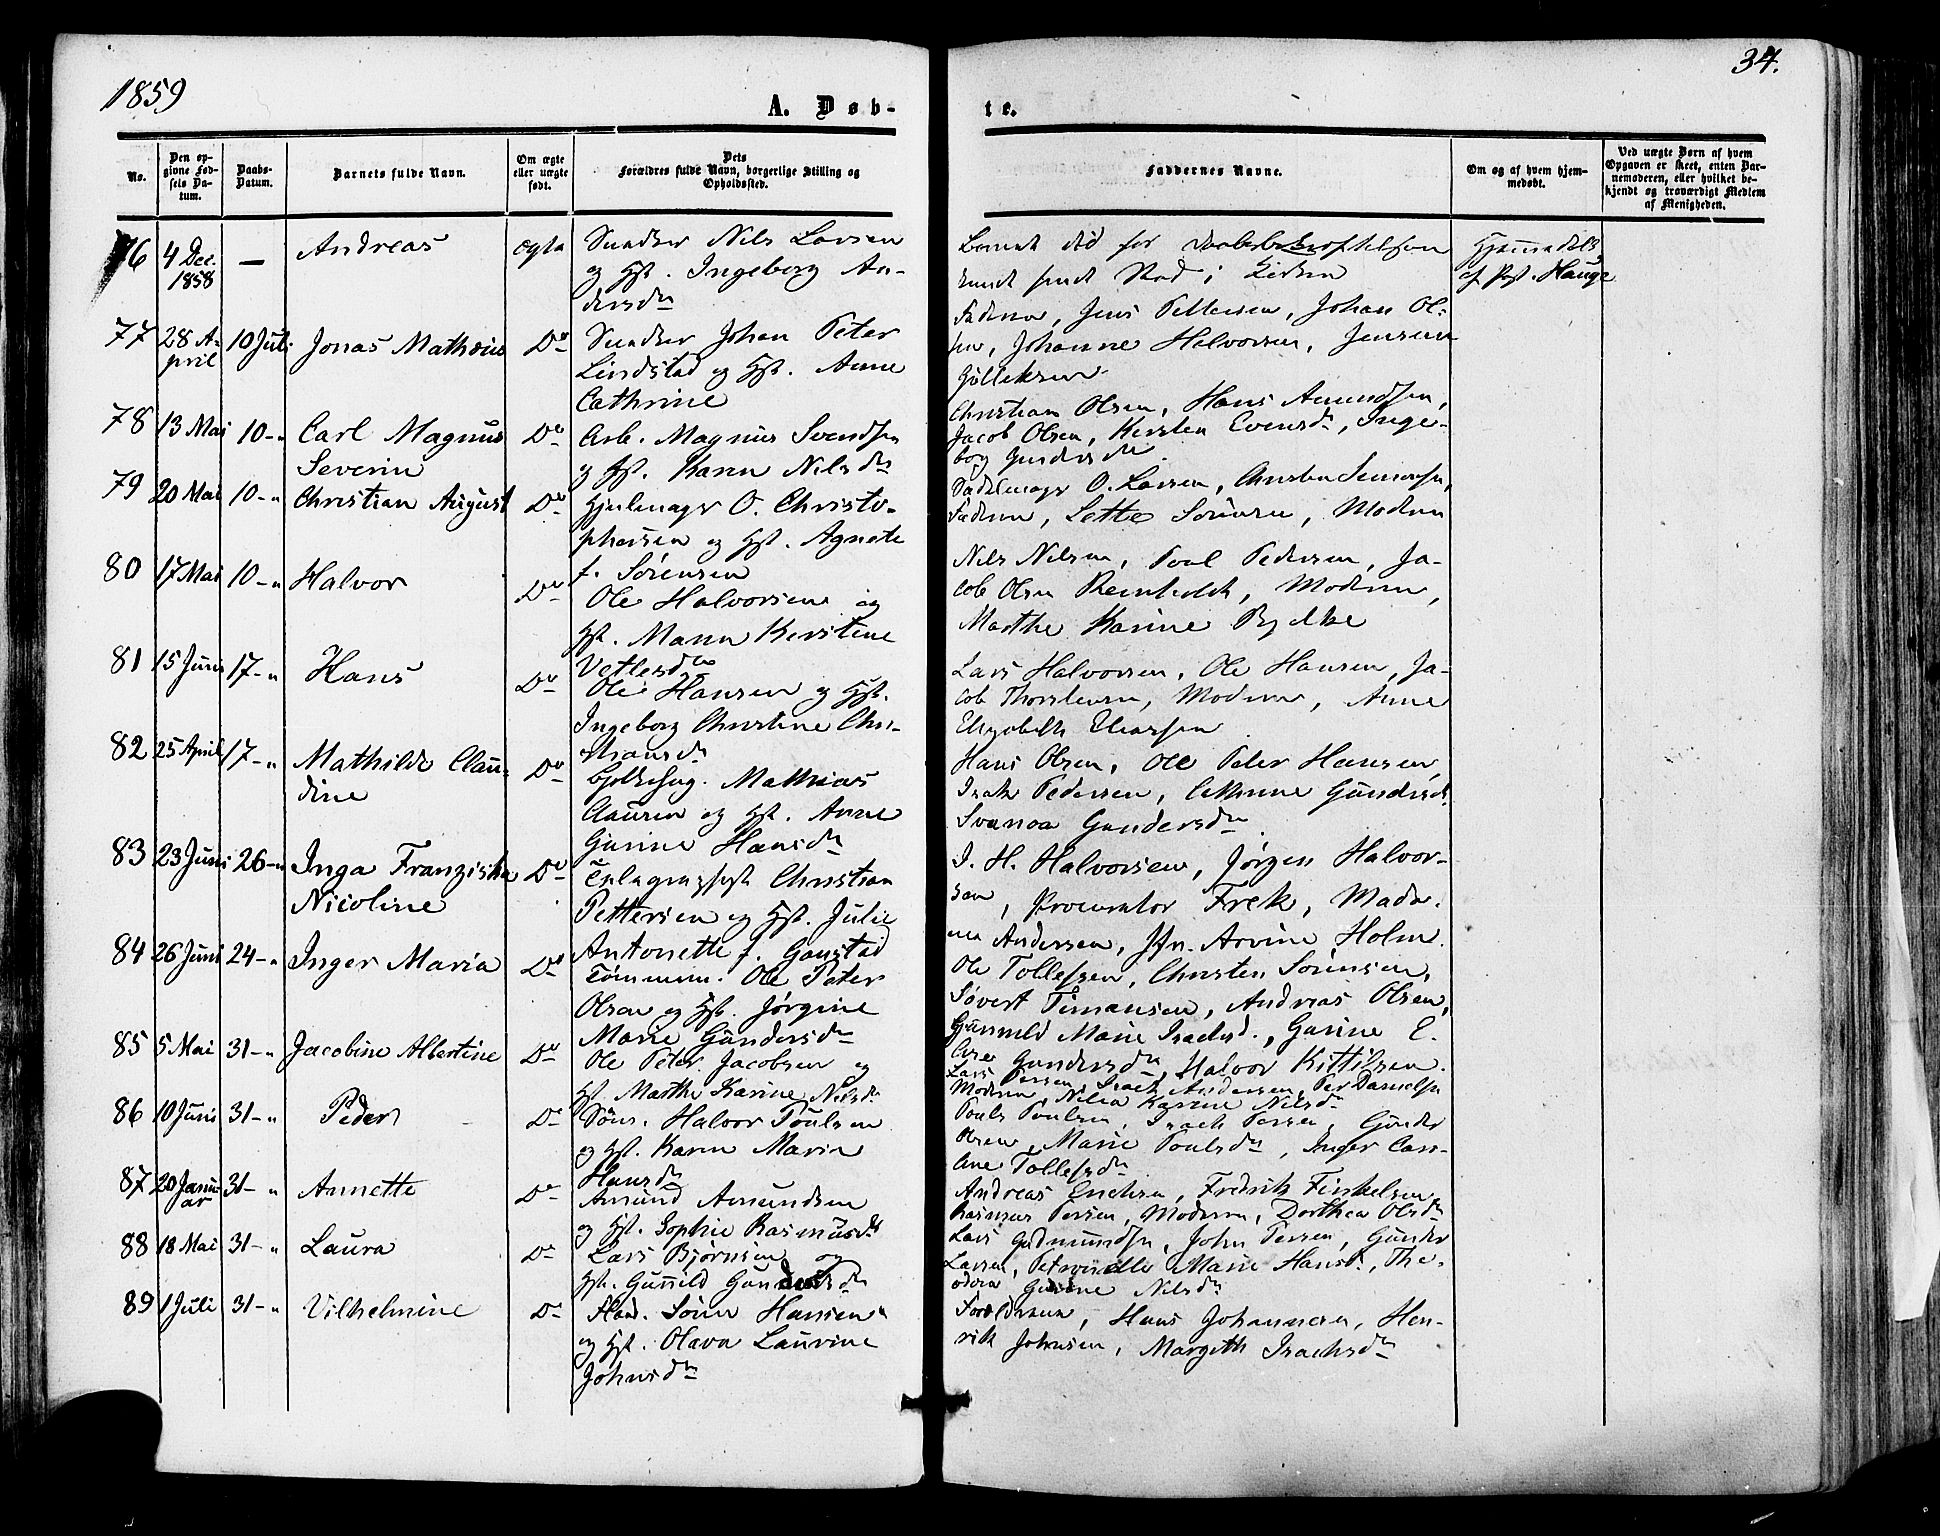 1859
34.
A. Døb-
te.
No.
Den opgivne Fødsels Datum.
Daabs-Datum.
Barnets fulde Navn.
Om ægte eller uægte født.
Dets Forældres fulde Navn, borgerlige Stilling og Opholdssted.
Faddernes Navne.
Om og af hvem hjemmedøbt.
Ved uægte Børn af hvem Opgaven er skeet, enten Barnemoderen, eller hvilket bekjendt og troværdigt Medlem af Menigheden.
76 4 Dec. 1858 — Andreas ægte
Nils Larsen
og Hst. Ingeborg An-
dersdn
Barnet død før
i Kirken
Hjemmedøbt
af Pst. Hauge
77 28 April 10 Juli Jonas Mathæus Do
Johan Peter
Lindstad og Hst. Anne
Cathrine
Faderen, Jens Pettersen, Johan Ol-
sen, Johanne Halvorsen, Jensine
Gulleksen
78 13 Mai 10-" Carl Magnus
Severin Do
Arb. Magnus Svendsen
og Hst. Karen Nilsdn
Christian Olsen, Hans Amundsen,
Jacob Olsen, Kirsten Evensdn, Inge-
borg Gundersdn
79 20 Mai 10-" Christian August Do
Hjulmager O. Christo-
phersen og Hst. Agnete
f. Sørensen
Sadelmager O. Larsen, Christen Simonsen,
Faderen, Lette Sørensen, Moderen
80 17 Mai 10-" Halvor Do
Ole Halvorsen og
Hst. Maren Kirstine
Vetlesdn
Nils Nilsen, Poul Pedersen, Ja-
cob Olsen Reinholdt, Moderen,
Marthe Karine Rydke
81 15 Juni 17-" Hans Do
Ole Hansen og Hst.
Ingeborg Christine Chri-
stiansdn
Lars Halvorsen, Ole Hansen, Ja-
cob Thorstensen, Moderen, Anne
Elisabeth Eliassen
82 25 April 17-" Mathilde Clau-
dine Do
Mathias
Clausen og Hst. Anne
Gurine Hansdn
Hans Olsen, Ole Peter Hansen,
Isak Pedersen, Cathrine Gundersd.
Svanoa Gundersdn
83 23 Juni 26-" Inga Franziska
Nicoline Do
Christian
Pettersen og Hst. Julie
Antonette f. Gaustad
J. H. Halvorsen, Jørgen Halvor-
sen, Procurator Frek, Mada-
me Andersen, Jfr. Arvine Holm.
84 26 Juni 24-" Inger Maria Do
Tømmerm. Ole Peter
Olsen og Hst. Jørgine
Marie Gundersdn
Ole Tollefsen, Christen Sørensen,
Sivert Timansen, Andreas Olsen,
Gunnild Marie Isachsd., Gurine E.
85 5 Mai 31-" Jacobine Albertine Do
Ole Peter Jacobsen og
Hst. Marthe Karine Nilsdn
Gundersdn, Halvor Kittilsen.
Lars Persen, Isach Andersen, Per Danielsen
Moderen, Nilia Karine Nilsdn
86 10 Juni 31-" Peder Do
Halvor Poulsen
og Hst. Karen Maria
Hansdn
Pouls Poulsen, Isach Persen, Gunder
Olsen, Marie Poulsdn, Inger Caro-
line Tollefsdn
87 20 Januar 31-" Annette Do
Amund Amundsen
og Hst. Sophie Rasmusdn
Andreas Erichsen, Fredrik Finkelsen,
Rasmus Persen, Moderen, Dorthea Olsdn
88 18 Mai 31-" Laura Do
Lars Bjørnsen og
Hst. Gunnild Gundersdn
Lars Gudmundsen, John Persen, Gunder
Larsen, Petronelle Marie Hansd., The-
odora Gurine Nilsdn
89 1 Juli 31-" Vilhelmine Do
Sören Hansen
og Hst. Olava Laurine
Johnsdn
Forældrene, Hans Johannesen, Hen-
rik Johnsen, Margith Isachsdn